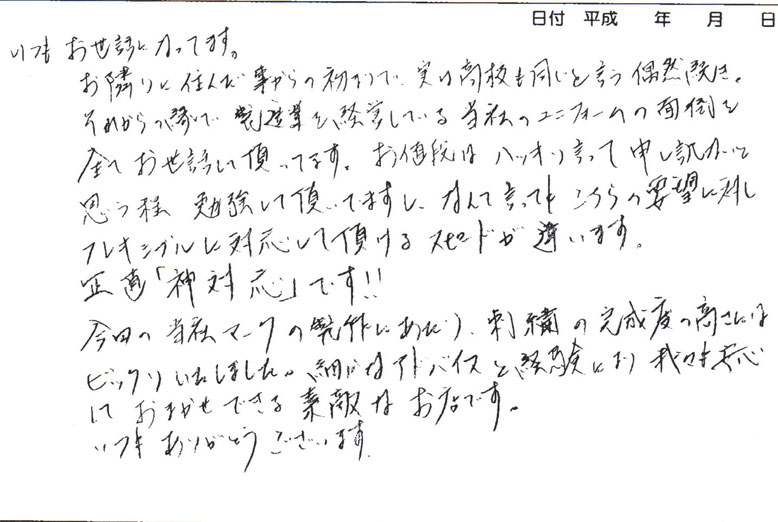 日付 平成 年 月 日
いつも お世話になってます。
お隣りに住んだ事からの初まりで、実は高校も同じと言う偶然続き。
それからの縁で、製造業を経営している当社のユニフォームの面倒を
全てお世話して頂ってます。お値段はハッキリ言って申し訳ないと
思う程 勉強して頂いてますし、なんて言っても こちらの要望に対し
フレキシブルに対応して頂けるスピードが違います。
正直「神対応」です!!
今回の当社マークの製作にあたり、刺繍の完成度の高さには
ビックリいたしました。細かなアドバイスと経験により 我々も安心
して おまかせできる素敵なお店です。
いつも ありがとう ございます。